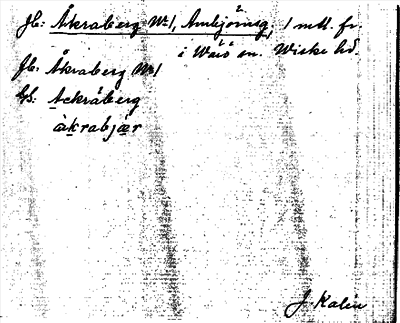 Jb: Åkraberg No 1, Amkjörnsg, 1 mtl. fr.
i Wäsö sn. Wiske hd.
Jb: Åkraberg No 1
Gs: Ackråberg
àkrabjær
J. Kalén